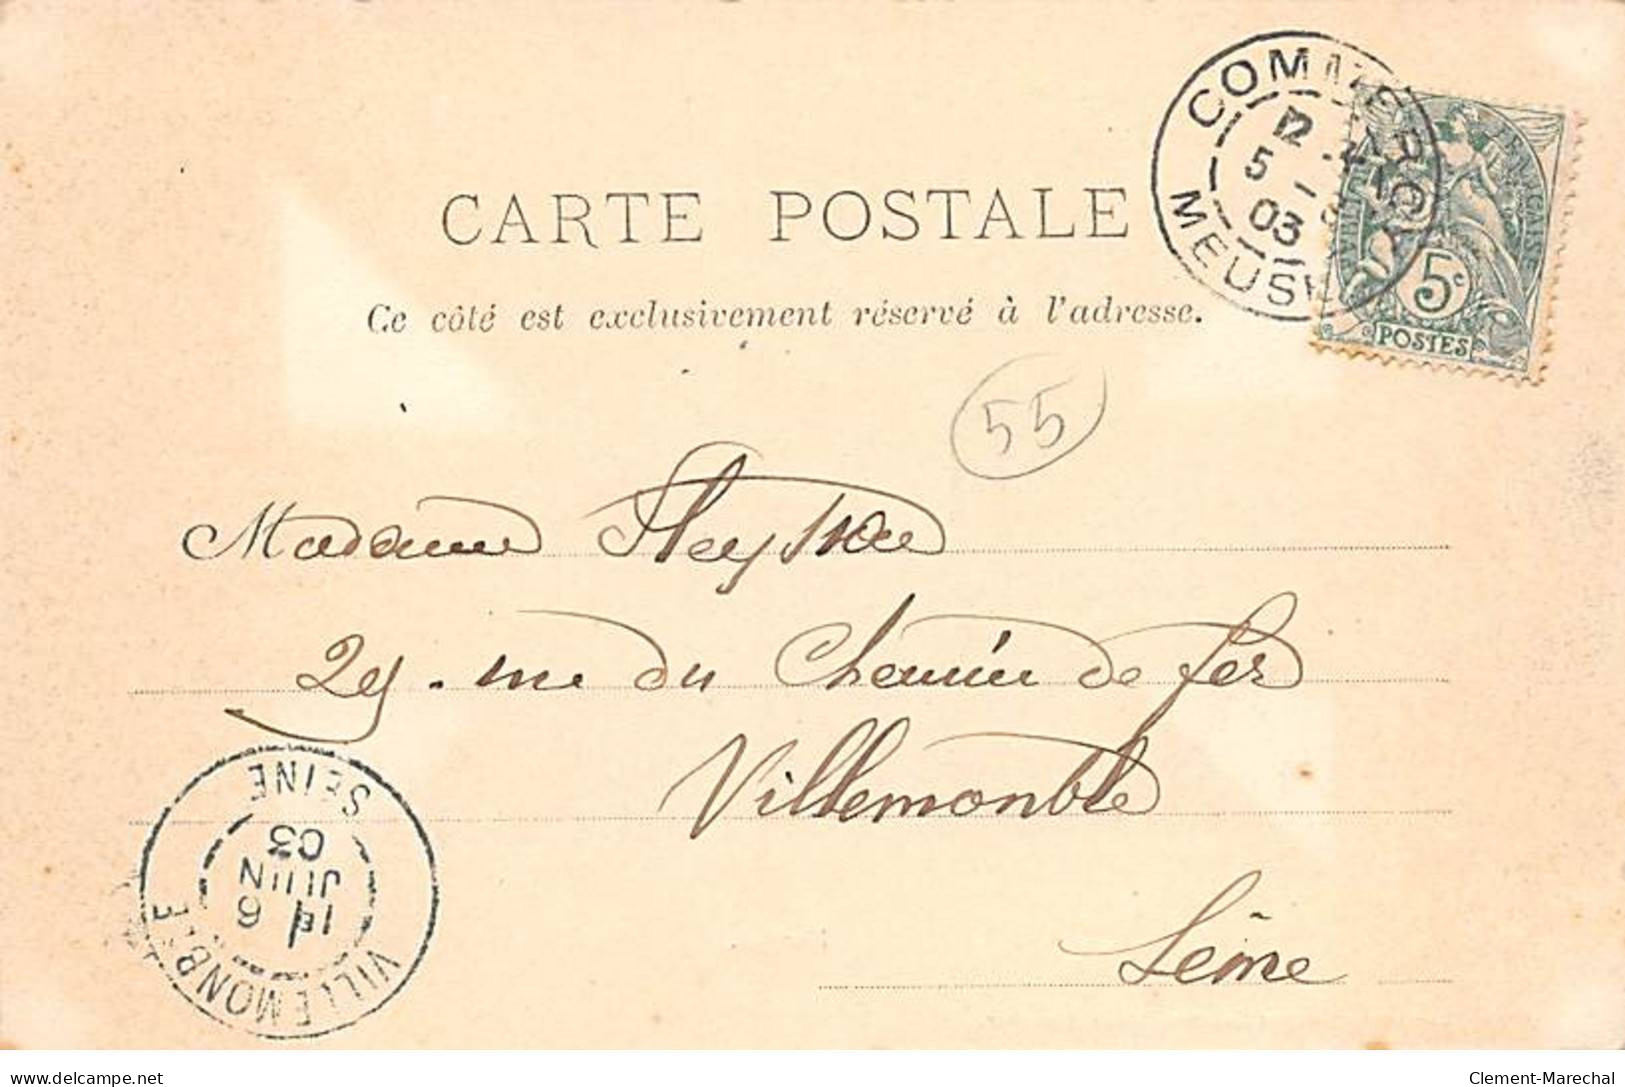 CARTE POSTALE
Ce côté est exclusivement réservé à l'adresse.
COMMERCY
12
5
03
MEUSE
FRANÇAISE
5c
POSTES
55
Madame
29 . rue du Chemin de fer
Villemonble
Seine
VILLEMONBLE
1E
6
JUIN
03
SEINE
delcampe.net
Clement-Marechal